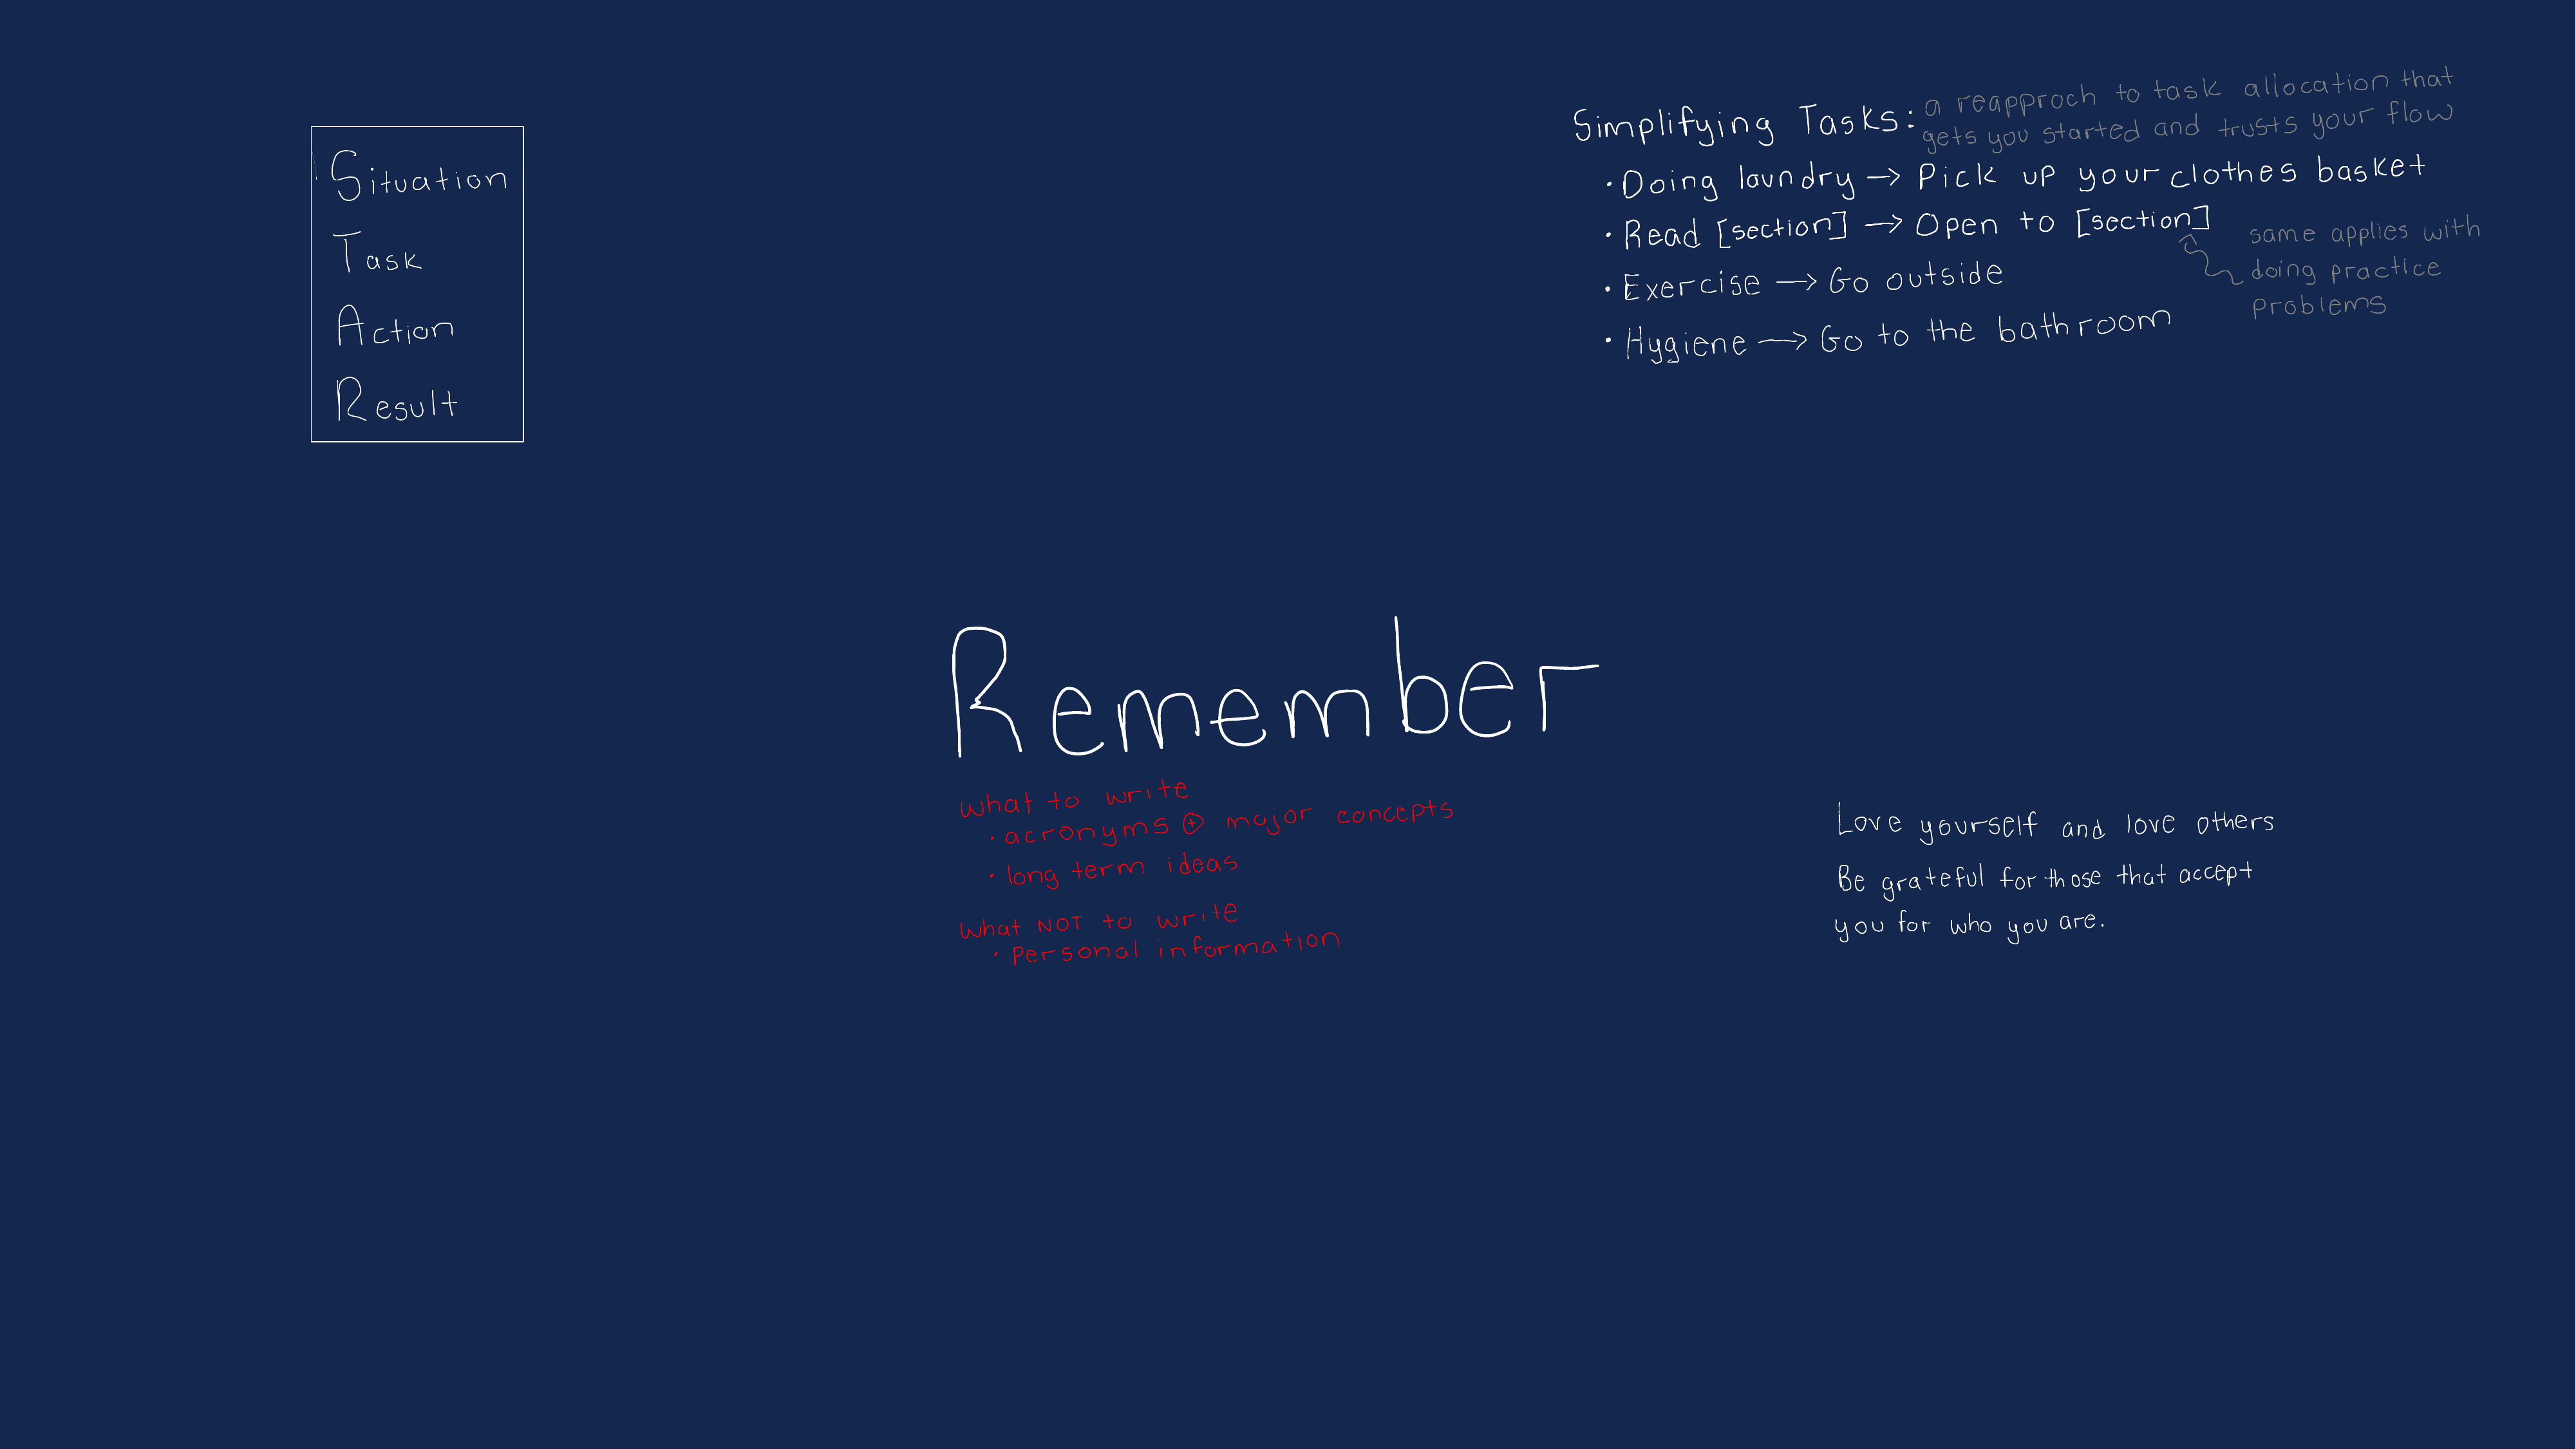 Situation
Task
Action
Result
Simplifying Tasks: a reapproch to task allocation that
gets you started and trusts your flow
• Doing laundry → Pick up your clothes basket
• Read [section] → Open to [section]
same applies with
doing practice
problems
• Exercise → Go outside
• Hygiene → Go to the bathroom
Remember
what to write
• acronyms ⊕ major concepts
• long term ideas
what NOT to write
• personal information
Love yourself and love others
Be grateful for those that accept
you for who you are.